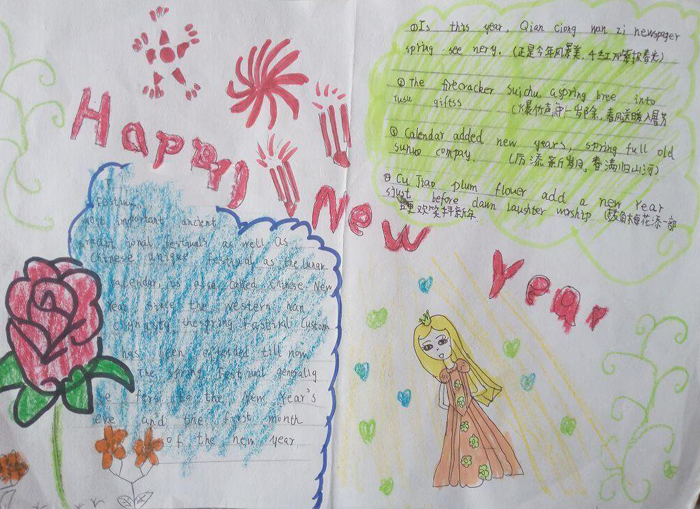 Happy New Year
①Is this year, Qian Ciong wan zi newspaper
spring see nery. (正是今年风景美,千红万紫报春光)
②The firecracker suichu, a spring bree into
tusu giftss (爆竹声中一岁除,春风送暖入屠苏
③Calendar added new years, spring full old
sunwo compay. (历添新岁月,春满旧山河)
④Cu Jiao plum flower add a new Year
stust before dawn laughter worship (数角梅花添一部
欢笑拜新年
Festival
most important ancient
traditional festival as well as
Chinese unique festival as the lunar
Calendar, is also called Chinese New
Year since the western Han
the spring Festival custom
has been till now
the spring Festival generally
refers to the New Year's
eve and the first month
of the new year